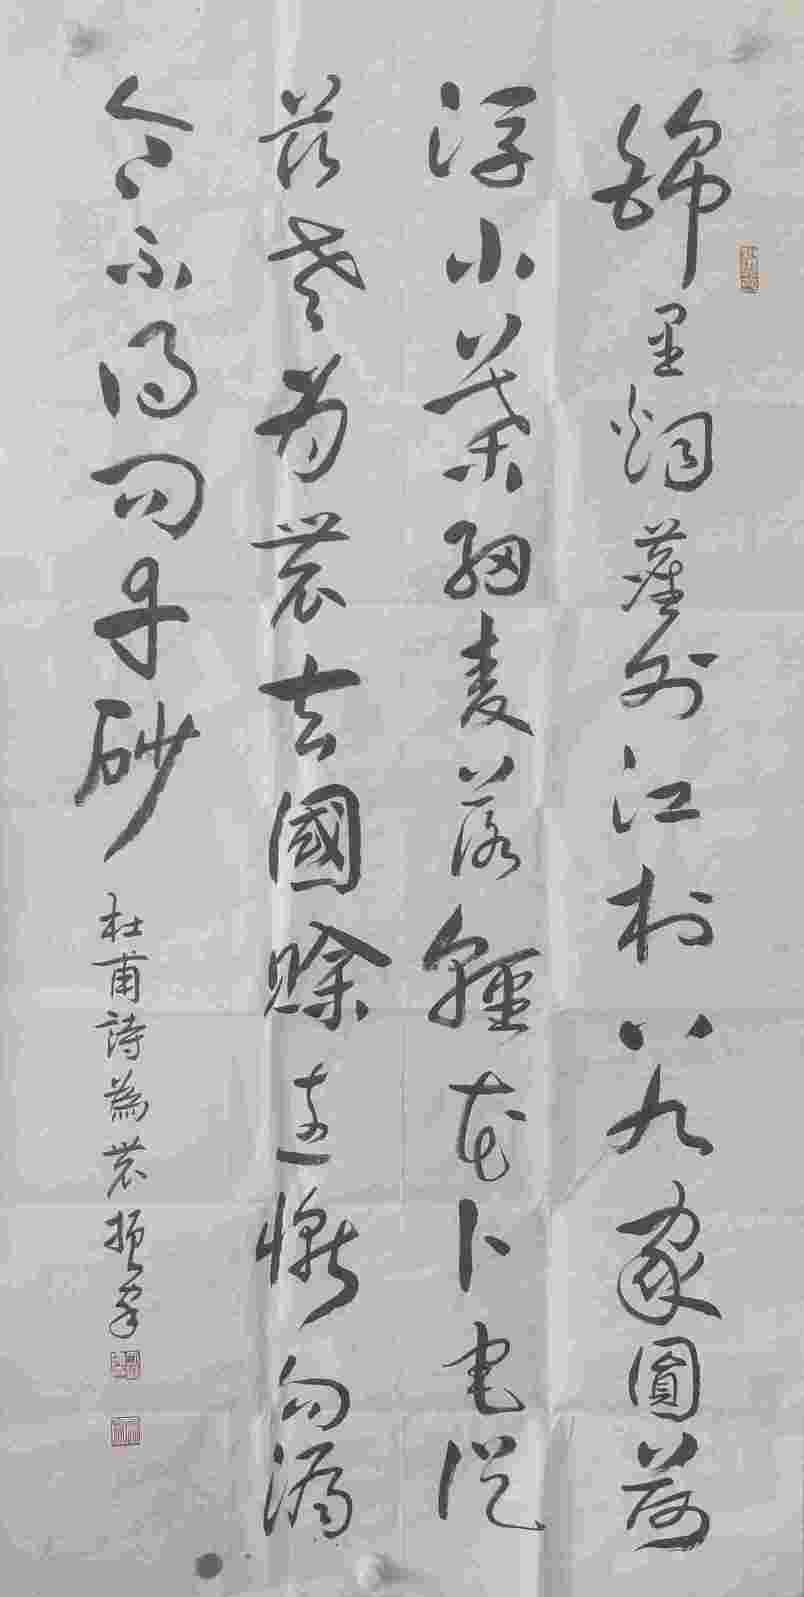 錦里烟塵外江村八九家圓荷
浮小葉細麥落輕花卜宅從
茲老為農去國賒遠慚勾漏
令不得問丹砂
杜甫詩為農